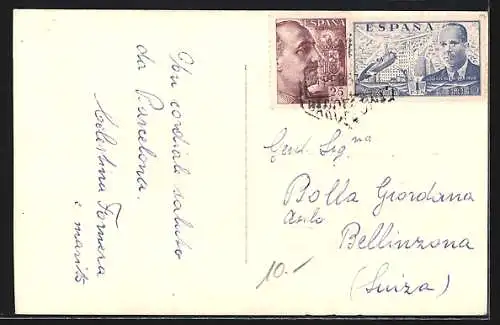 Un cordiale saluto
da Barcelona.
Celestina Fornera
e marito
ESPAÑA
25
ESPAÑA
Gent. Sig.ma
Bolla Giordana
asilo
Bellinzona
(Suiza)
10.-